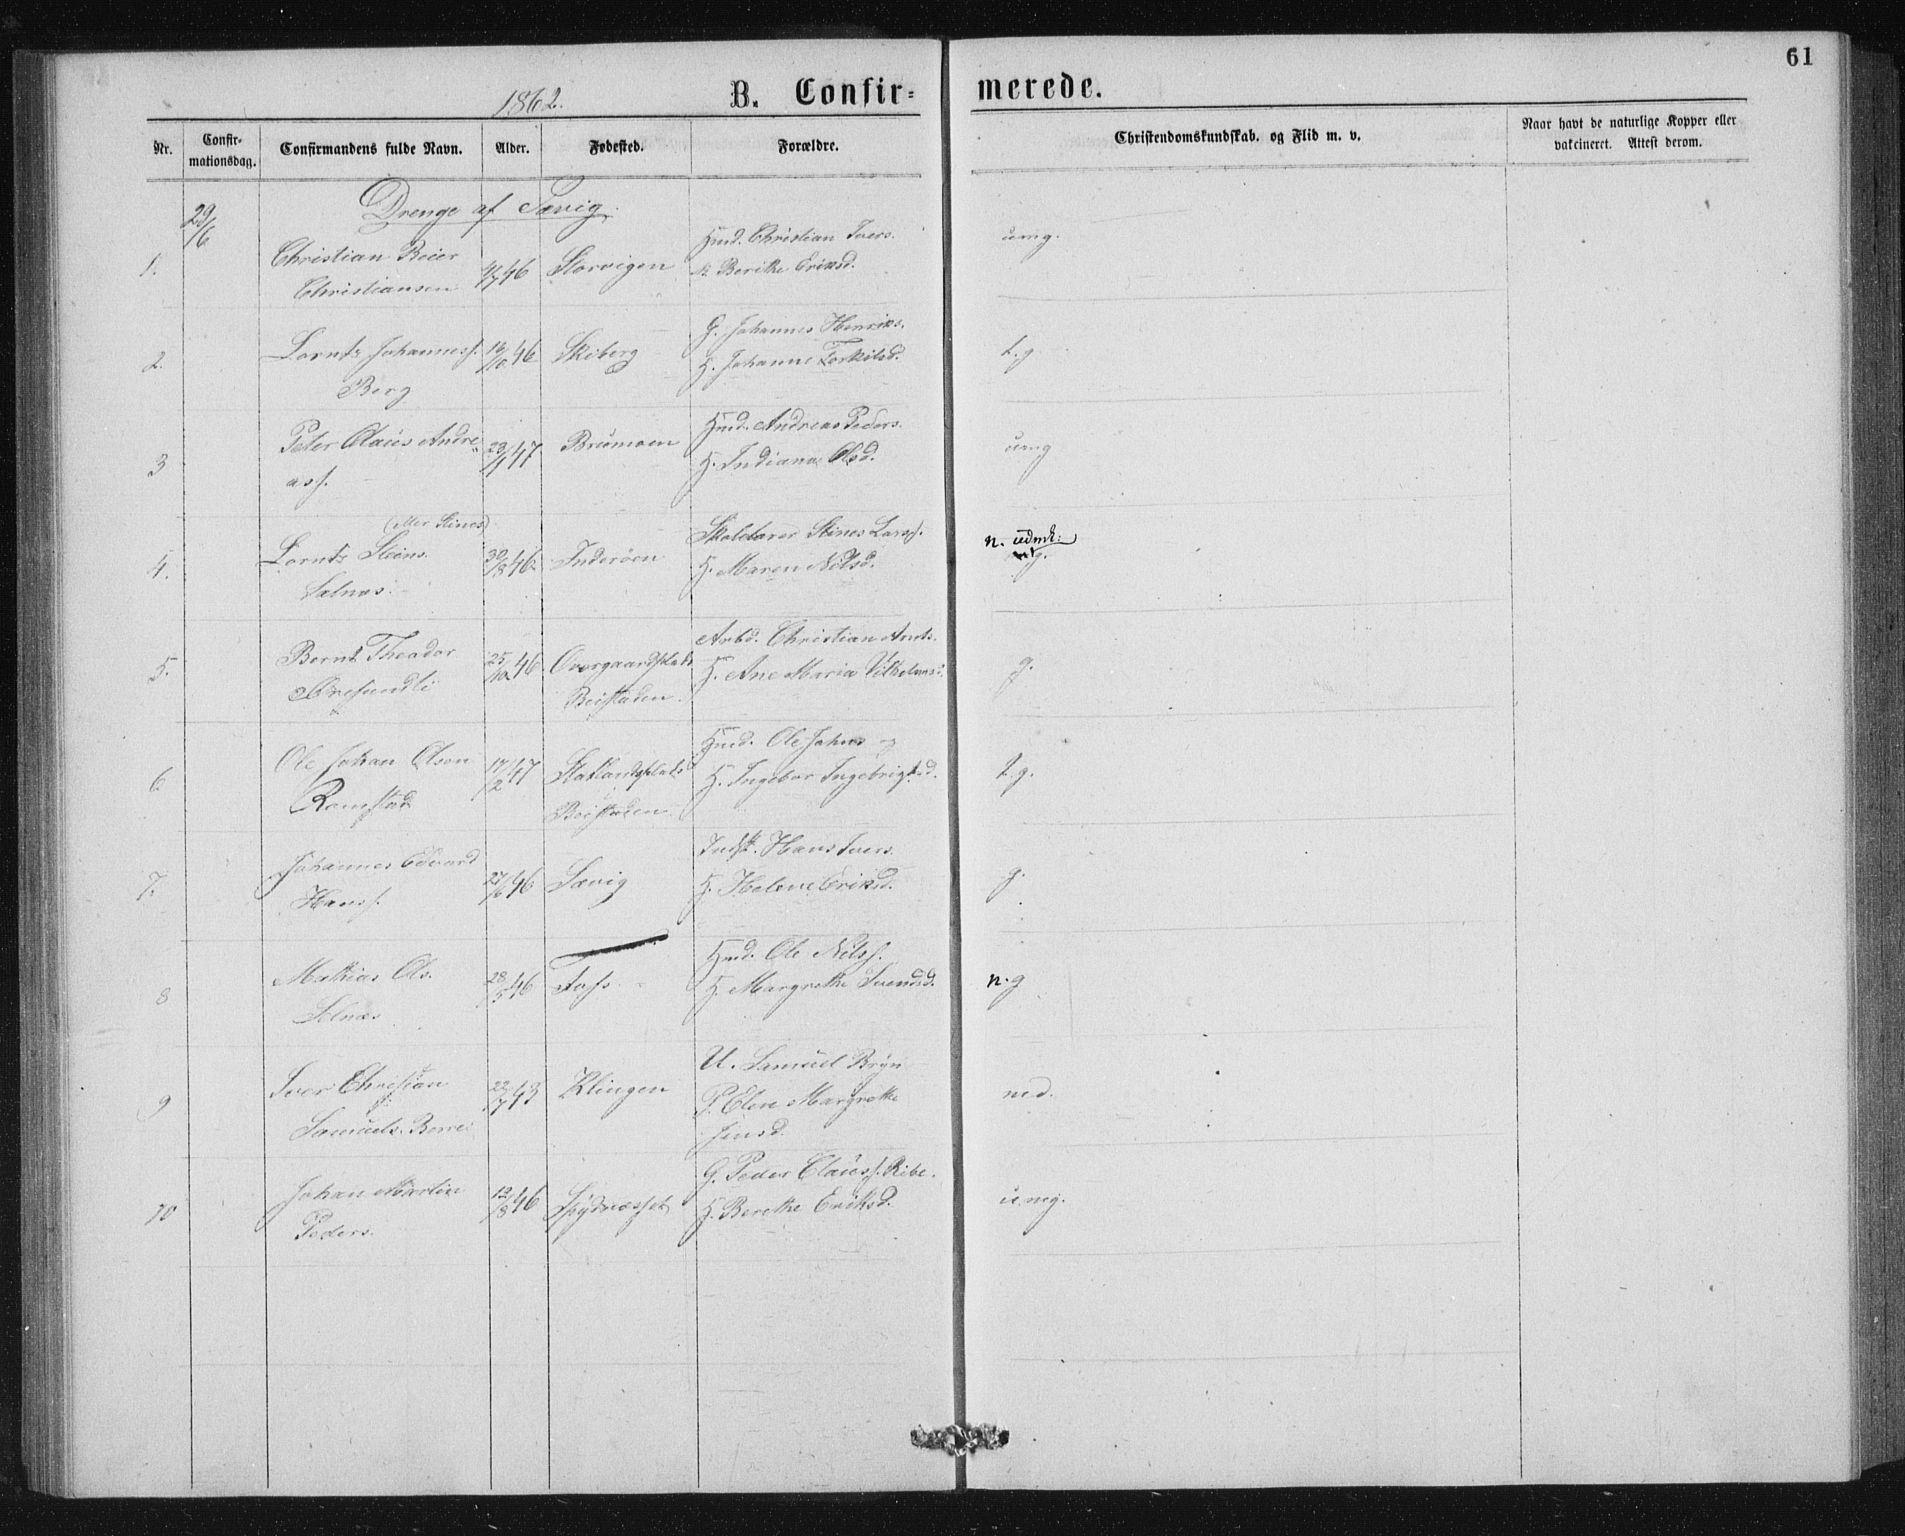 61
1862.
B. Confir-
merede.
Nr.
Confir-
mationsdag.
Confirmandens fulde Navn.
Alder.
Fødested.
Forældre.
Christendomskundskab. og Flid m. v.
Naar havt de naturlige Kopper eller
vakcineret. Attest derom.
29/6
Drenge af Sævig.
1.
Christian Beier
Christiansen
46
Storvigen
Hmd. Christian Ivers.
Berithe Eriksd.
umg.
2.
Lornts Johannesf.
Berg
16/10 46
Skiberg
G. Johannes Henriks.
H. Johanne Torkilsd.
t.g
3
Peter Claus Andre
asf.
23/1 47
Hmd. Andreas Peders.
H. Indiana Olsd.
umg
4.
(eller Stines)
Lornts Steens.
Selnæs
30/8 46
Inderøen
Skolelærer Stines Larsf.
H. Maren Nilsd.
n. udmk:
5.
Bernt Theodor
25/10 46
Overgaardsplads
Beistaden
Arbd. Christian Arnts.
H. Ane Maria Vilhelmsd.
g.
6
Ole Johan Olsen
Ramstad
17/2 47
Beistaden
Hmd. Ole Johns
H. Ingebor Ingebrigtsd.
t.g.
7.
Johannes Edvard
Hansf.
27/6 46
Sævig
Indst. Hans Ivers.
H. Helene Eriksd.
g.
8
Mathias Ols.
Selnæs
28/5 46
Fosf
Hmd. Ole Nilsf.
H. Margrethe Svendsd.
n.g
9
Iver Christian
Samuels.
22/7 43
Klingen
U. Samuel Bryn
P. Elen Margrethe
Jensd.
md.
10
Johan Martin
Peders.
12/8 46
Spydnæsset
G. Peder Clausf. Ribe.
H. Berethe Eriksd.
u. mg.